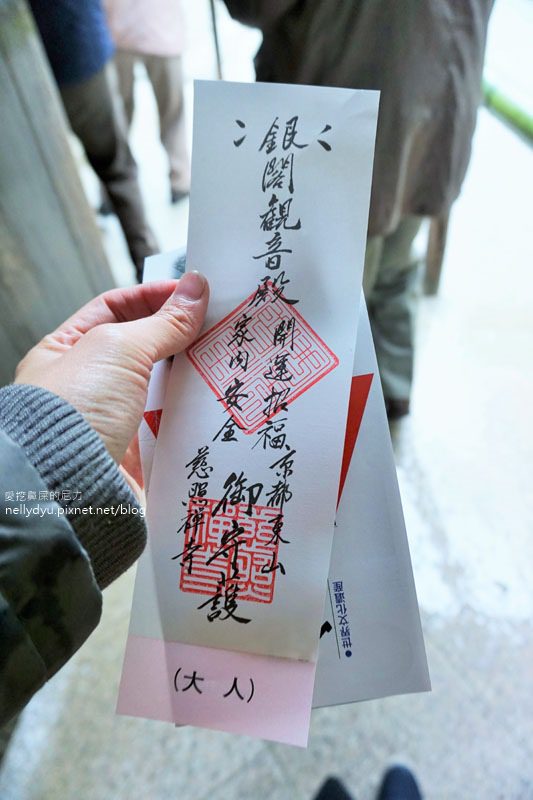 銀閣観音殿
開運招福
家内安全
京都東山
慈照禅寺
御守護
(大人)
●世界文化遺産
愛挖鼻屎的尼力
nellydyu.pixnet.net/blog